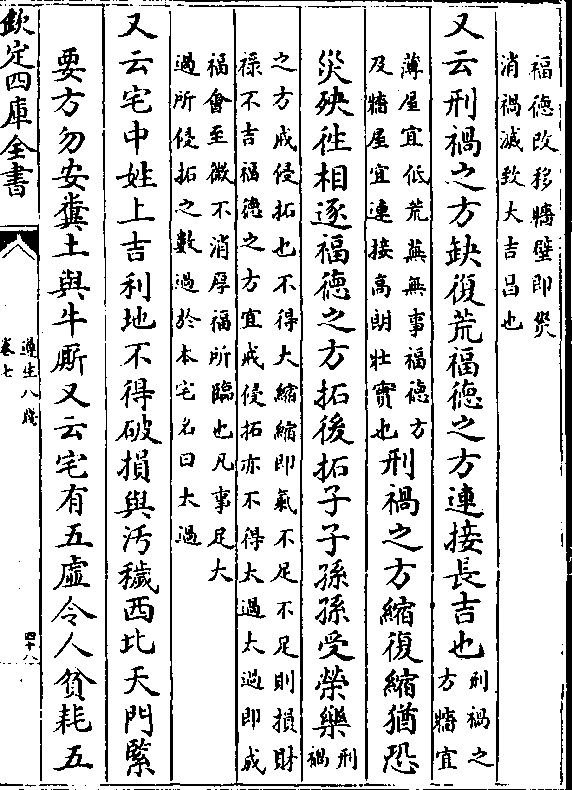 福德改移牆壁即災
消禍滅致大吉昌也
又云刑禍之方缺復荒福德之方連接長吉也刑禍之
方牆宜
薄屋宜低荒蕪無事福德方
及牆屋宜連接高朗壯實也刑禍之方縮復縮猶恐
災殃往相逐福德之方拓後拓子子孫孫受榮樂刑
禍
之方戒侵拓也不得大縮縮即氣不足不足則損財
祿不吉福德之方宜戒侵拓亦不得太過太過即成
福會至微不消厚福所臨也凡事足大
過所侵拓之數過於本宅名曰大過
又云宅中姓上吉利地不得破損與汚穢西北天門緊
要方勿安糞土與牛厮又云宅有五虛令人貧耗五
欽定四庫全書
遵生八牋
卷七
四十八